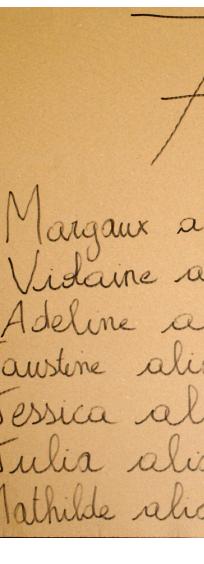 Margaux a
Violaine a
Adeline a
austine alia
Jessica al
Julia alia
Mathilde alia